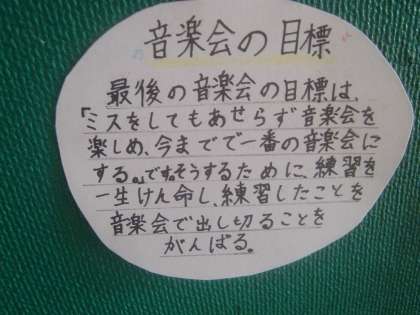 音楽会の目標
最後の音楽会の目標は、
「ミスをしてもあせらず音楽会を
楽しめ、今までで一番の音楽会に
する。」です。そうするために、練習を
一生けん命し、練習したことを
音楽会で出し切ることを
がんばる。